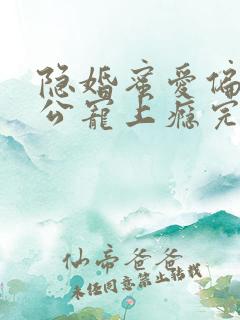 隐婚蜜爱偏
公宠上瘾完
仙帝爸爸
未经同意禁止转载